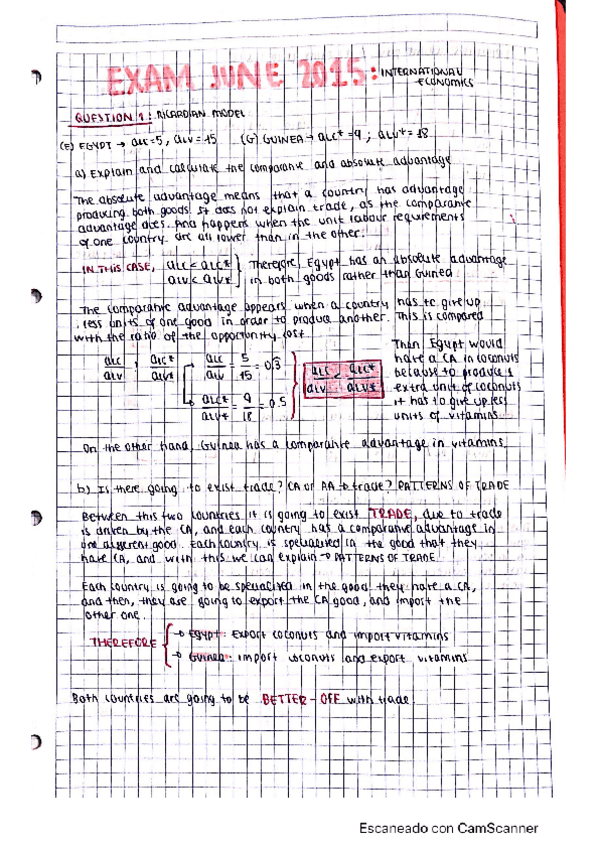 EXAM JUNE 2015: INTERNATIONAL ECONOMICS
QUESTION 1: RICARDIAN MODEL
(E) EGYPT → aLC=5, aLV=15 (G) GUINEA → aLC*=9; aLV*=18
a) Explain and calculate the comparative and absolute advantage
The absolute advantage means that a country has advantage
producing both goods. It does not explain trade, as the comparative
advantage does. And happens when the unit labour requirements
of one country are all lower than in the other.
IN THIS CASE, aLC < aLC* } Therefore, Egypt has an absolute advantage
aLV < aLV* } in both goods rather than Guinea.
The comparative advantage appears when a country has to give up
less units of one good in order to produce another. This is compared
with the ratio of the opportunity cost
aLC/aLV ; aLC*/aLV* → aLC/aLV = 5/15 = 0.3̂
aLC*/aLV* = 9/18 = 0.5
aLC/aLV < aLC*/aLV*
Then Egypt would
have a CA in coconuts
because to produce 1
extra unit of coconuts
it has to give up less
units of vitamins
On the other hand, Guinea has a comparative advantage in vitamins.
b) Is there going to exist trade? CA or AA to trade? PATTERNS OF TRADE
Between this two countries it is going to exist TRADE, due to trade
is driven by the CA, and each country has a comparative advantage in
one different good. Each country is specialised in the good that they
have CA, and with this we can explain → PATTERNS OF TRADE
Each country is going to be specialized in the good they have a CA,
and then, they are going to export the CA good, and import the
other one.
THEREFORE { → Egypt: Export coconuts and import vitamins
→ Guinea: import coconuts and export vitamins
Both countries are going to be BETTER-OFF with trade.
Escaneado con CamScanner